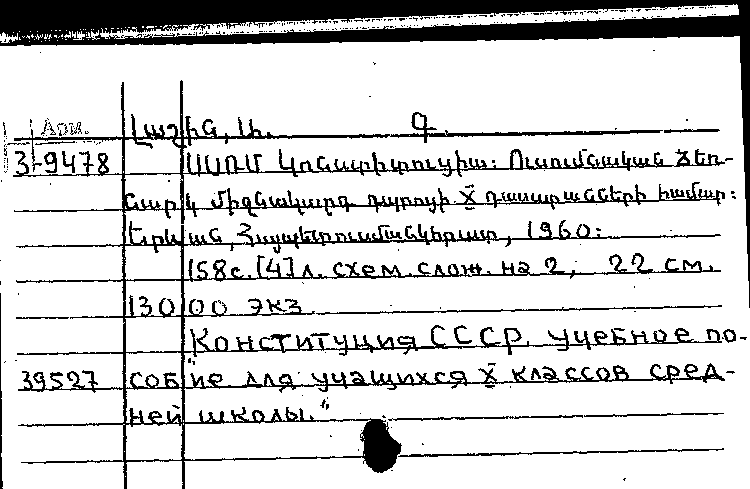 Арм. Լաշին, Ա. Գ.
3-9478 ՍՍՌՄ Կոնստիտուցիա: Ուսումնական ձեռ-
նարկ միջնակարգ դպրոցի X դասարանների համար:
Երևան, Հայպետուսմանկհրատ, 1960:
158с. [4] л. схем. слож. на 2, 22 см.
13000 экз.
„Конституция СССР. Учебное по-
39527 собие для учащихся X классов сред-
ней школы.“